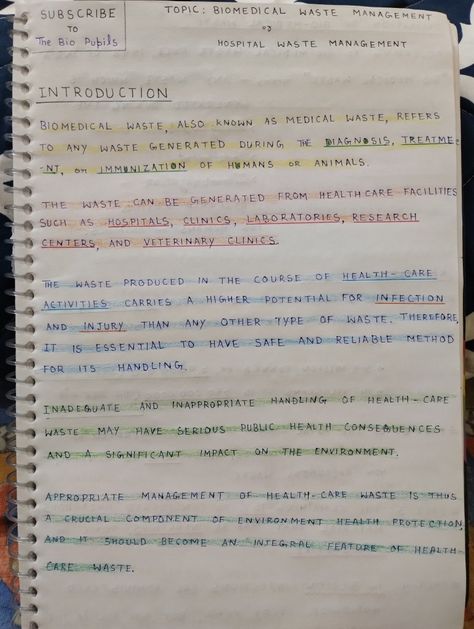 SUBSCRIBE
TO
The Bio Pupils
TOPIC: BIOMEDICAL WASTE MANAGEMENT
or
HOSPITAL WASTE MANAGEMENT
INTRODUCTION
BIOMEDICAL WASTE, ALSO KNOWN AS MEDICAL WASTE, REFERS
TO ANY WASTE GENERATED DURING THE DIAGNOSIS, TREATME-
NT, OR IMMUNIZATION OF HUMANS OR ANIMALS.
THE WASTE CAN BE GENERATED FROM HEALTHCARE FACILITIES
SUCH AS HOSPITALS, CLINICS, LABORATORIES, RESEARCH
CENTERS, AND VETERINARY CLINICS.
THE WASTE PRODUCED IN THE COURSE OF HEALTH-CARE
ACTIVITIES CARRIES A HIGHER POTENTIAL FOR INFECTION
AND INJURY THAN ANY OTHER TYPE OF WASTE. THEREFORE,
IT IS ESSENTIAL TO HAVE SAFE AND RELIABLE METHOD
FOR ITS HANDLING.
INADEQUATE AND INAPPROPRIATE HANDLING OF HEALTH-CARE
WASTE MAY HAVE SERIOUS PUBLIC HEALTH CONSEQUENCES
AND A SIGNIFICANT IMPACT ON THE ENVIRONMENT.
APPROPRIATE MANAGEMENT OF HEALTH-CARE WASTE IS THUS
A CRUCIAL COMPONENT OF ENVIRONMENT HEALTH PROTECTION,
AND IT SHOULD BECOME AN INTEGRAL FEATURE OF HEALTH-
CARE WASTE.